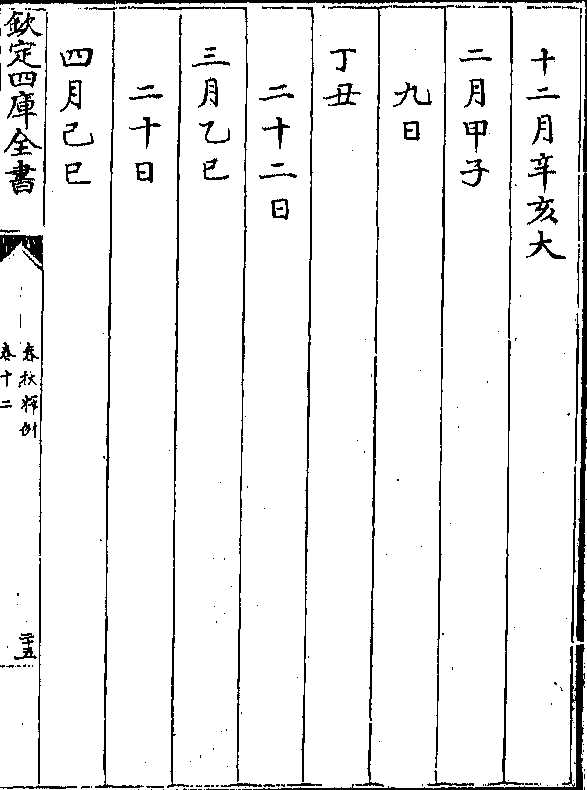 十二月辛亥大
二月甲子
九日
丁丑
二十二日
三月乙巳
二十日
四月己巳
欽定四庫全書
春秋釋例
卷十二
二十五